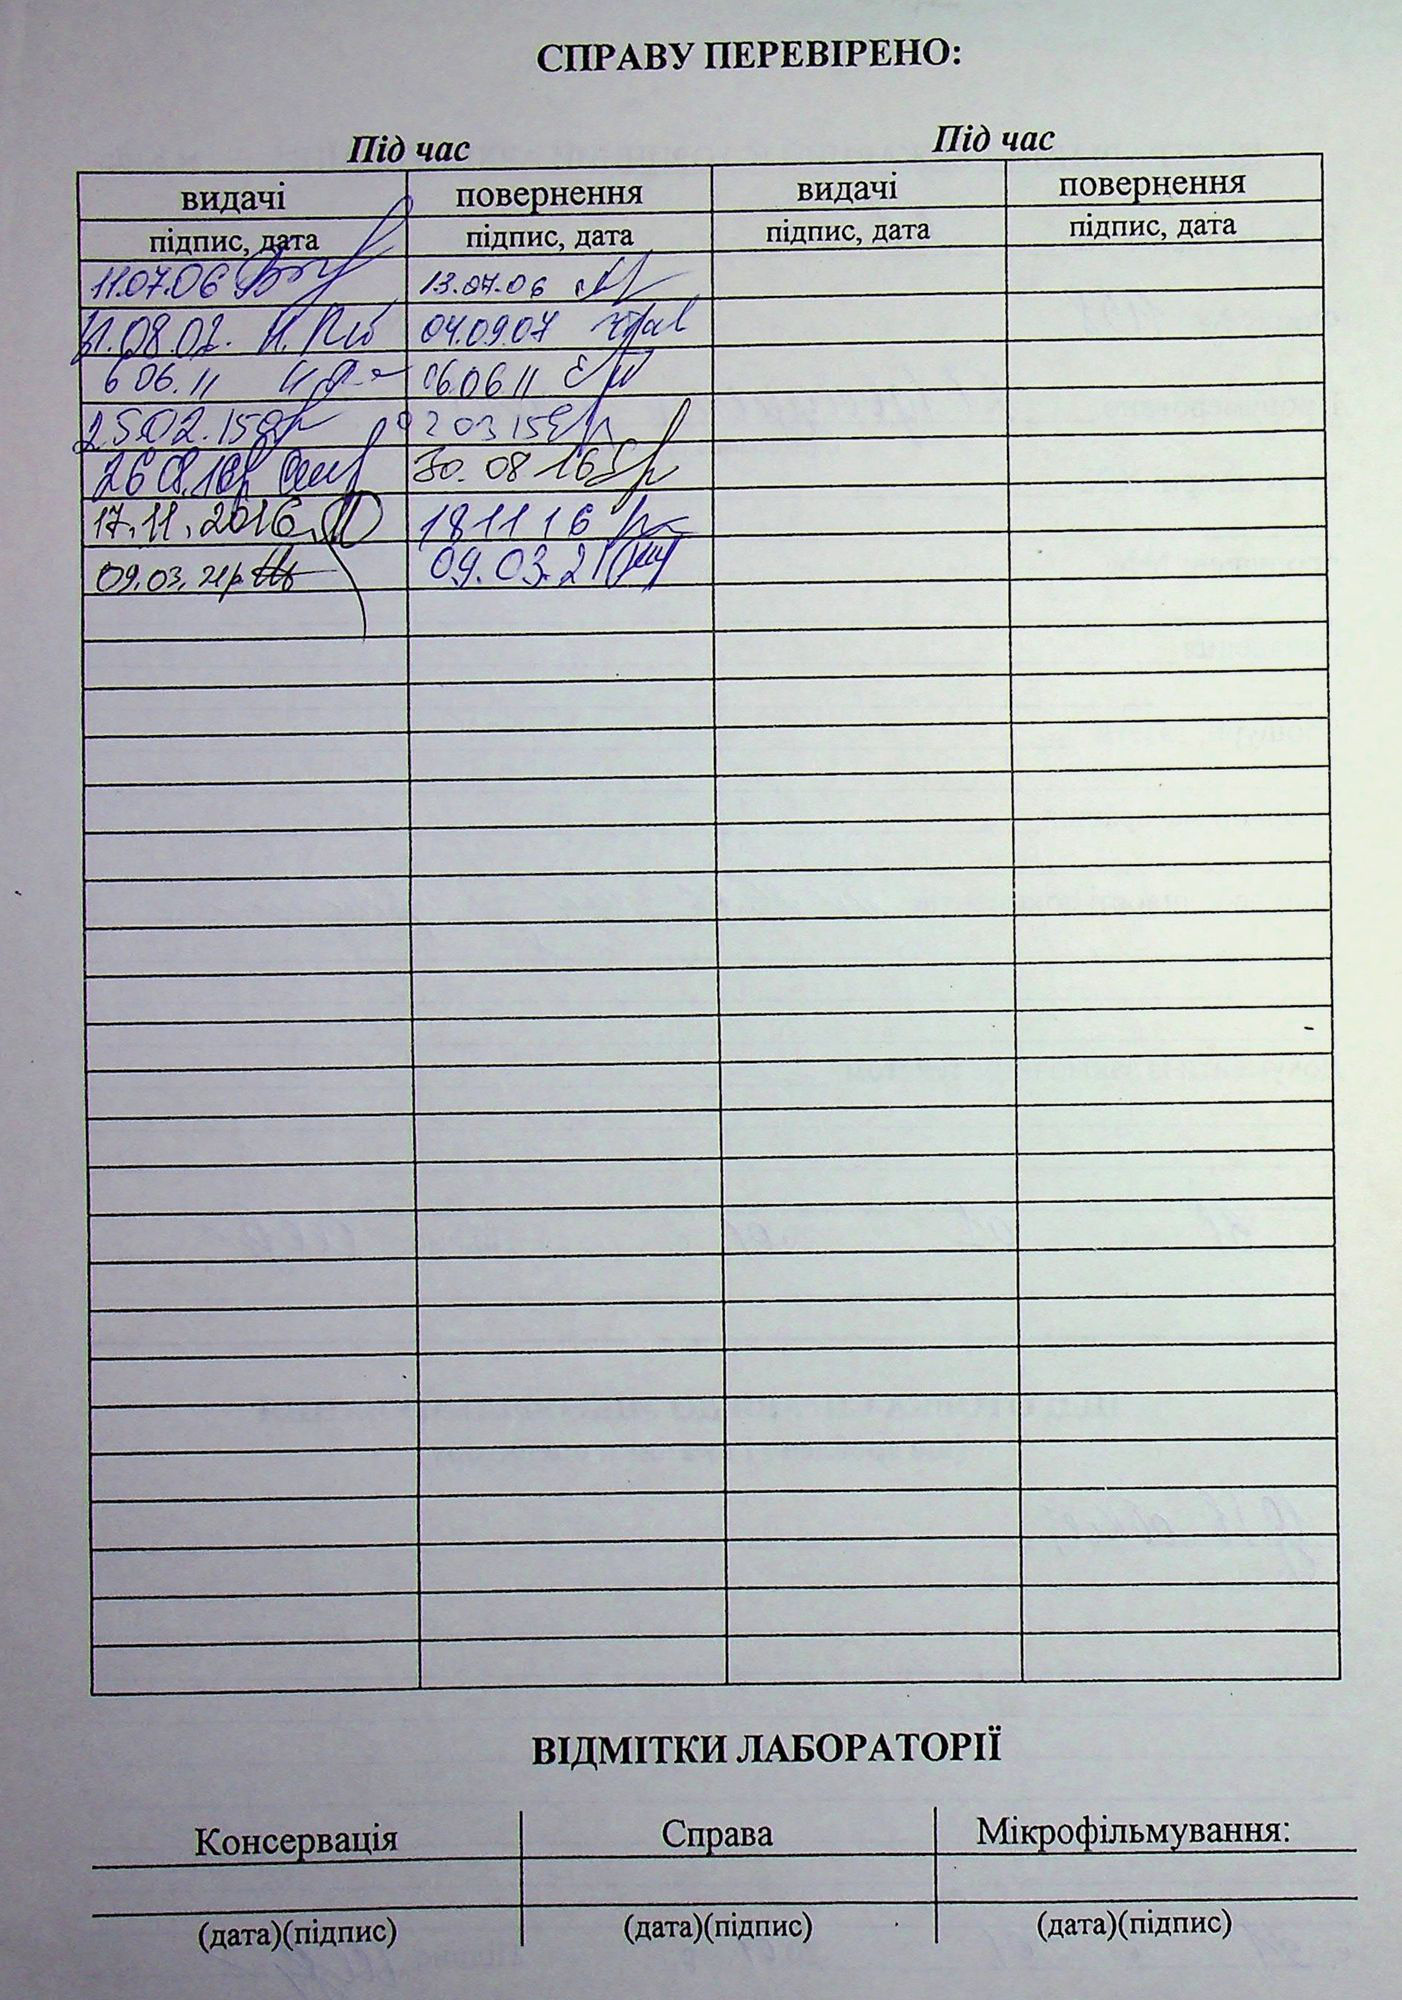 СПРАВУ ПЕРЕВІРЕНО:
Під час Під час
видачі повернення видачі повернення
підпис, дата підпис, дата підпис, дата підпис, дата
11.07.06 13.07.06
31.08.07. 04.09.07
6 06.11 06.06 11
25.02.15 02 03 15
26 08.16 30.08 16
17.11.2016 18 11 16
09.03.21р 09.03.21
ВІДМІТКИ ЛАБОРАТОРІЇ
Консервація Справа Мікрофільмування:
(дата)(підпис) (дата)(підпис) (дата)(підпис)